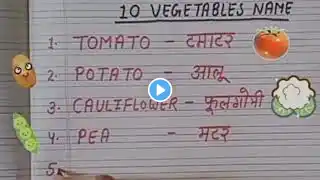 10 VEGETABLES NAME
1. TOMATO - टमाटर
2. POTATO - आलू
3. CAULIFLOWER - फूलगोभी
4. PEA - मटर
5